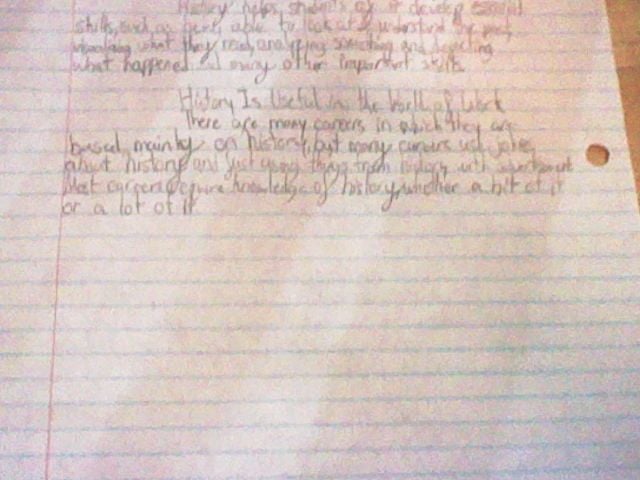 History helps students develop essential
skills, such as being able to look at & understand the past,
what they read, analyzing something and depicting
what happened and many other important skills.
History Is Useful in the World of Work
There are many careers in which they are
based mainly on history, but many careers use jokes
about history and just using things from history with
Most careers require knowledge of history, whether a bit of it
or a lot of it.